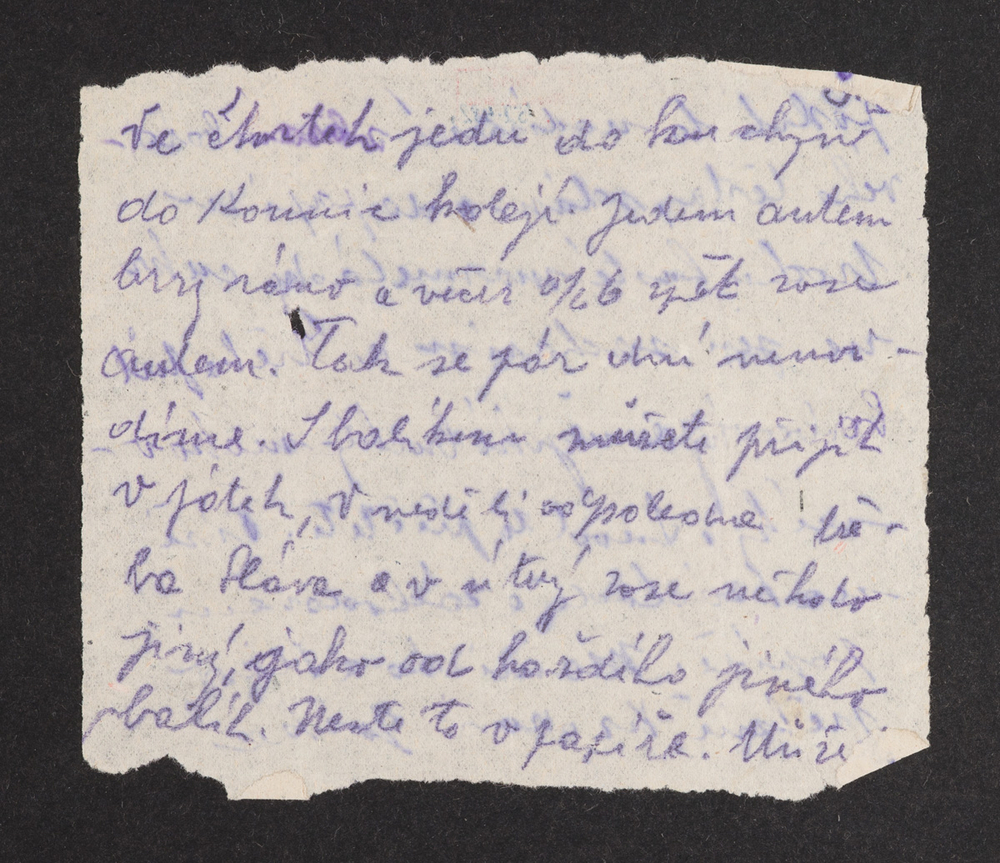 Ve čtvrtek jedu do kuchyně
do Kounic kolejí. Jedem autem
brzy ráno a večer o/26 zpět zase
autem. Tak se pár dní neuvi-
díme. S balíkem můžete přijít
v pátek, v neděli odpoledne tře-
ba Sláva a v úterý zase někdo
jiný, jako od každého jiného
balík. Neste to v papíře. Může